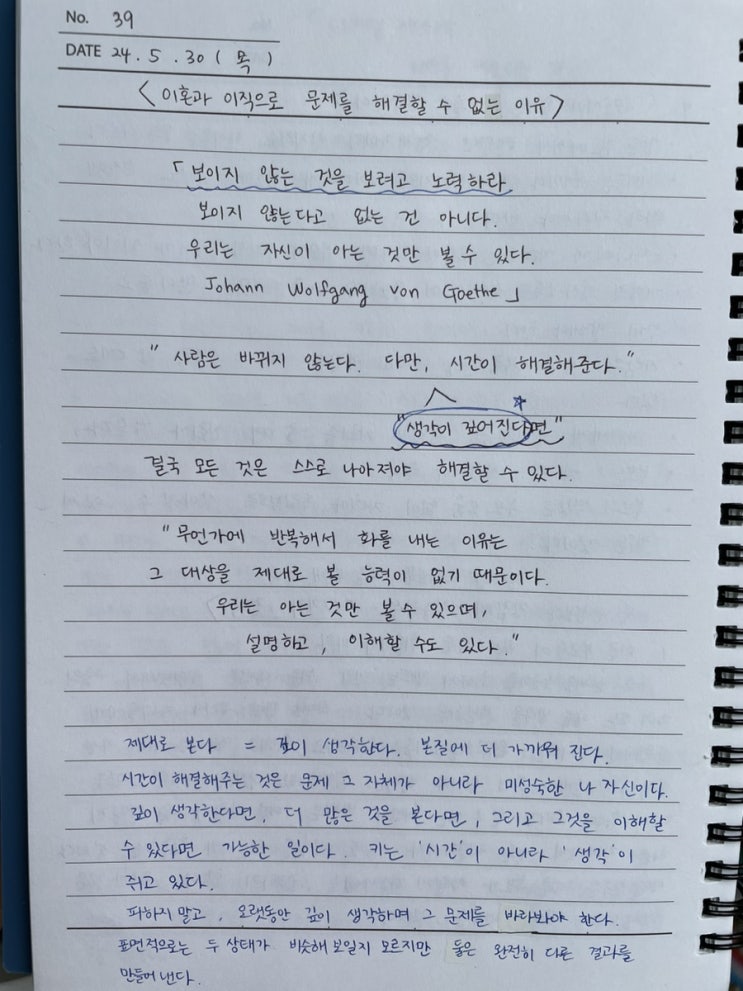 No. 39
DATE 24. 5. 30 ( 목 )
< 이혼과 이직으로 문제를 해결할 수 없는 이유 >
「 보이지 않는 것을 보려고 노력하라.
보이지 않는다고 없는 건 아니다.
우리는 자신이 아는 것만 볼 수 있다.
Johann Wolfgang von Goethe 」
" 사람은 바뀌지 않는다. 다만, 시간이 해결해준다. "
"생각이 깊어진다면"
결국 모든 것은 스스로 나아져야 해결할 수 있다.
" 무언가에 반복해서 화를 내는 이유는
그 대상을 제대로 볼 능력이 없기 때문이다.
우리는 아는 것만 볼 수 있으며,
설명하고, 이해할 수도 있다. "
제대로 본다 = 깊이 생각한다. 본질에 더 가까워 진다.
시간이 해결해주는 것은 문제 그 자체가 아니라 미성숙한 나 자신이다.
깊이 생각한다면, 더 많은 것을 본다면, 그리고 그것을 이해할
수 있다면 가능한 일이다. 키는 '시간'이 아니라 '생각'이
쥐고 있다.
피하지 말고, 오랫동안 깊이 생각하며 그 문제를 바라봐야 한다.
표면적으로는 두 상태가 비슷해 보일지 모르지만 둘은 완전히 다른 결과를
만들어 낸다.